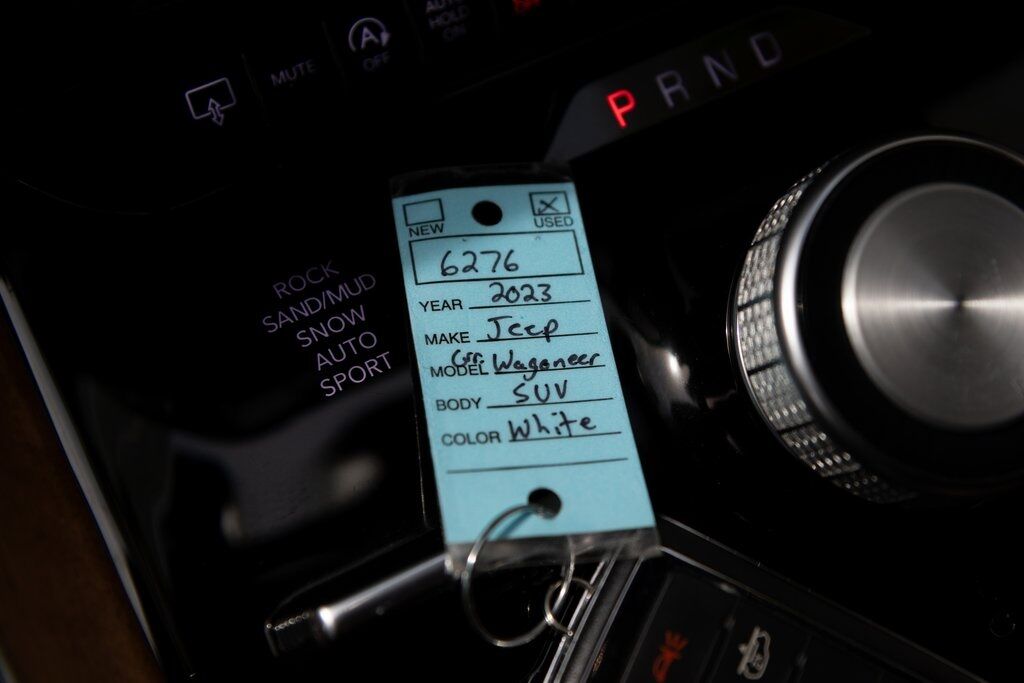 AUTO
HOLD
ON
A
OFF
MUTE
P R N D
NEW
USED
6276
YEAR 2023
MAKE Jeep
MODEL Gr. Wagoneer
BODY SUV
COLOR White
ROCK
SAND/MUD
SNOW
AUTO
SPORT